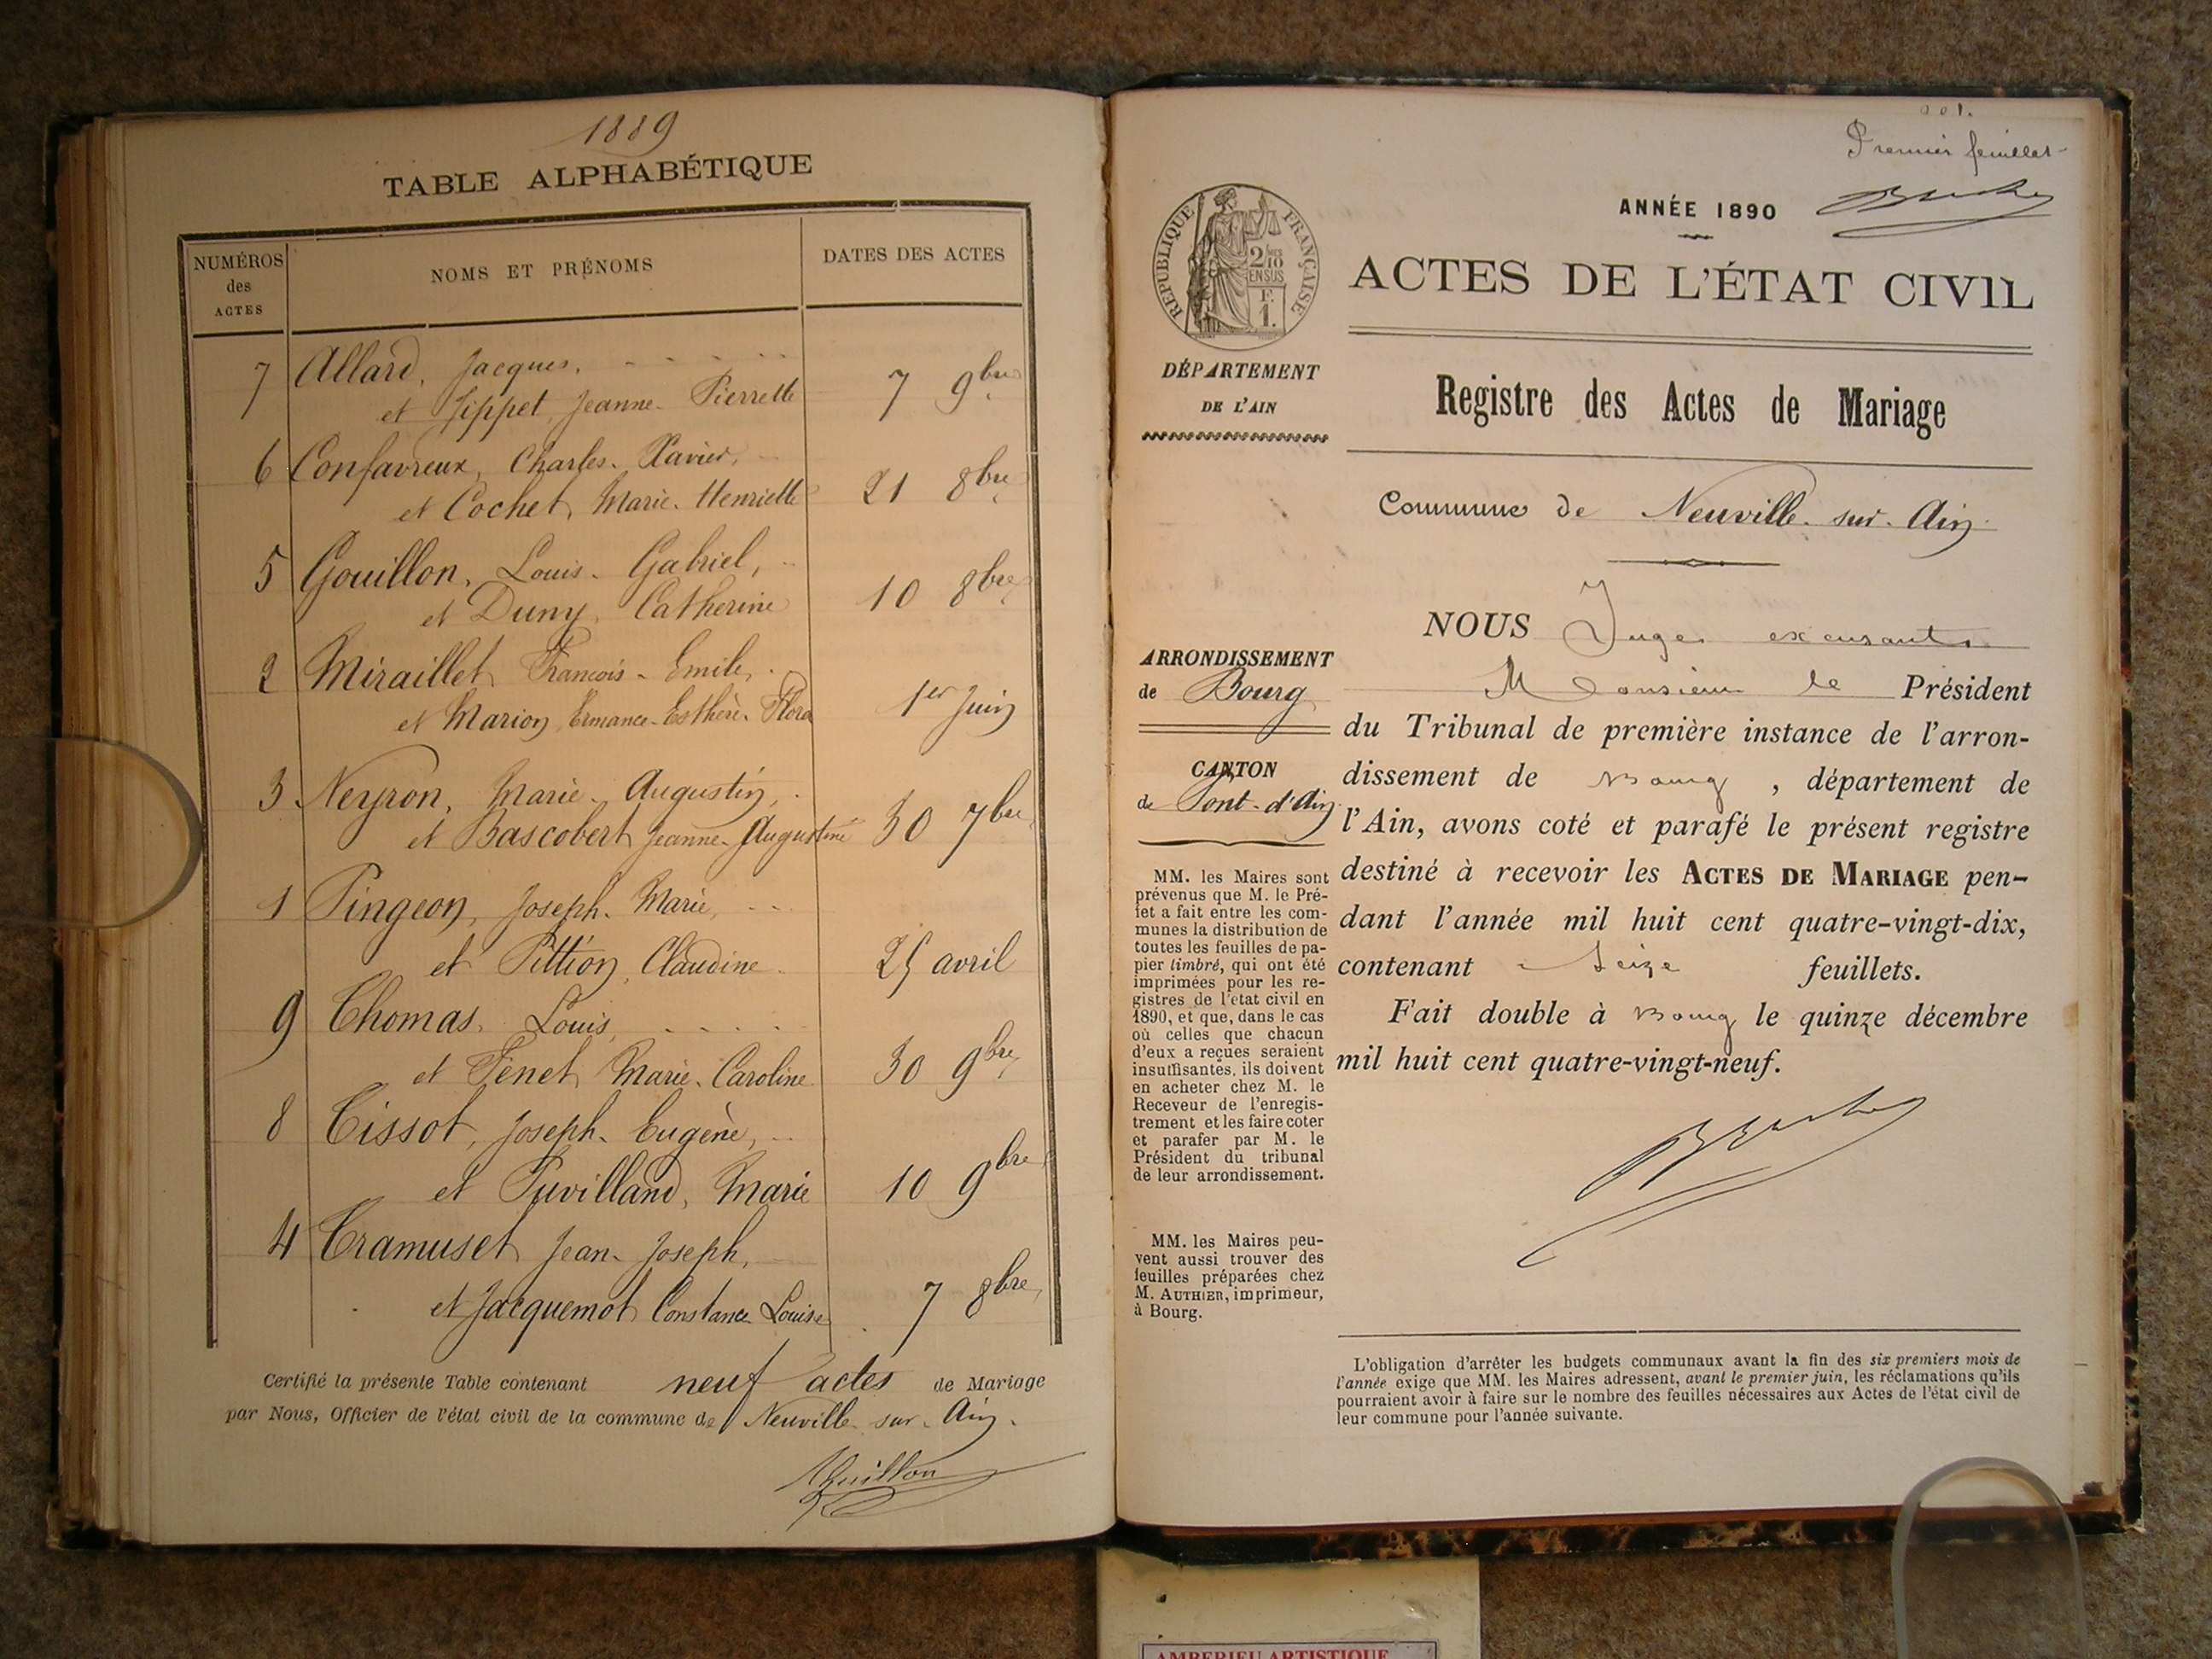 1889
TABLE ALPHABÉTIQUE
NUMÉROS des ACTES
NOMS ET PRÉNOMS
DATES DES ACTES
7 Allard, Jacques,
et Jippet, Jeanne-Pierrette 7 9bre
6 Confavreux, Charles-Xavier,
et Cochet, Marie-Henriette 21 8bre
5 Gouillon, Louis-Gabriel,
et Duny, Catherine 10 8bre
2 Miraillet, François-Emile,
et Marion, Ermance-Esthère-Flora 1er Juin
3 Neyron, Marie-Augustin,
et Bascobert, Jeanne-Augustine 30 7bre
1 Pingeon, Joseph-Marie,
et Pittion, Claudine 25 avril
9 Thomas, Louis,
et Fenet, Marie-Caroline 30 9bre
8 Tissot, Joseph-Eugène,
et Puvilland, Marie 10 9bre
4 Tramuset, Jean-Joseph,
et Jacquemot, Constance Louise 7 8bre
Certifié la présente Table contenant neuf actes de Mariage
par Nous, Officier de l'état civil de la commune de Neuville-sur-Ain.
001.
Premier feuillet
ANNÉE 1890
RÉPUBLIQUE FRANÇAISE
2/10
EN SUS
F.
1.
ACTES DE L'ÉTAT CIVIL
DÉPARTEMENT
DE L'AIN
Registre des Actes de Mariage
Commune de Neuville-sur-Ain
ARRONDISSEMENT
de Bourg
CANTON
de Pont-d'Ain
MM. les Maires sont
prévenus que M. le Pré-
fet a fait entre les com-
munes la distribution de
toutes les feuilles de pa-
pier timbré, qui ont été
imprimées pour les re-
gistres de l'état civil en
1890, et que, dans le cas
où celles que chacun
d'eux a reçues seraient
insuffisantes, ils doivent
en acheter chez M. le
Receveur de l'enregis-
trement et les faire coter
et parafer par M. le
Président du tribunal
de leur arrondissement.
MM. les Maires peu-
vent aussi trouver des
feuilles préparées chez
M. AUTHIER, imprimeur,
à Bourg.
NOUS Juge
Monsieur le Président
du Tribunal de première instance de l'arron-
dissement de Bourg, département de
l'Ain, avons coté et parafé le présent registre
destiné à recevoir les ACTES DE MARIAGE pen-
dant l'année mil huit cent quatre-vingt-dix,
contenant Seize feuillets.
Fait double à Bourg le quinze décembre
mil huit cent quatre-vingt-neuf.
L'obligation d'arrêter les budgets communaux avant la fin des six premiers mois de
l'année exige que MM. les Maires adressent, avant le premier juin, les réclamations qu'ils
pourraient avoir à faire sur le nombre des feuilles nécessaires aux Actes de l'état civil de
leur commune pour l'année suivante.
AMBERIEU ARTISTIQUE